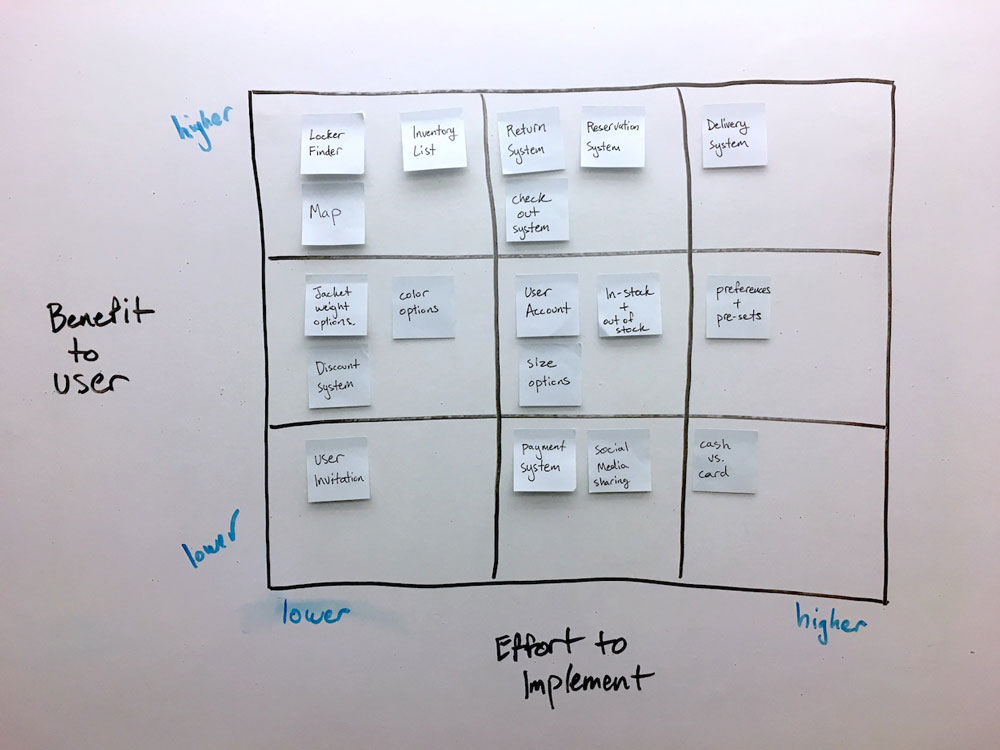 higher
Locker
Finder
Inventory
List
Return
System
Reservation
System
Delivery
System
Map
check
out
system
Benefit
to
user
Jacket
weight
options.
color
options
User
Account
In-stock
+
out of
stock
preferences
+
pre-sets
Discount
System
size
options
User
Invitation
payment
system
Social
Media
sharing
cash
vs.
card
lower
lower
higher
Effort to
Implement